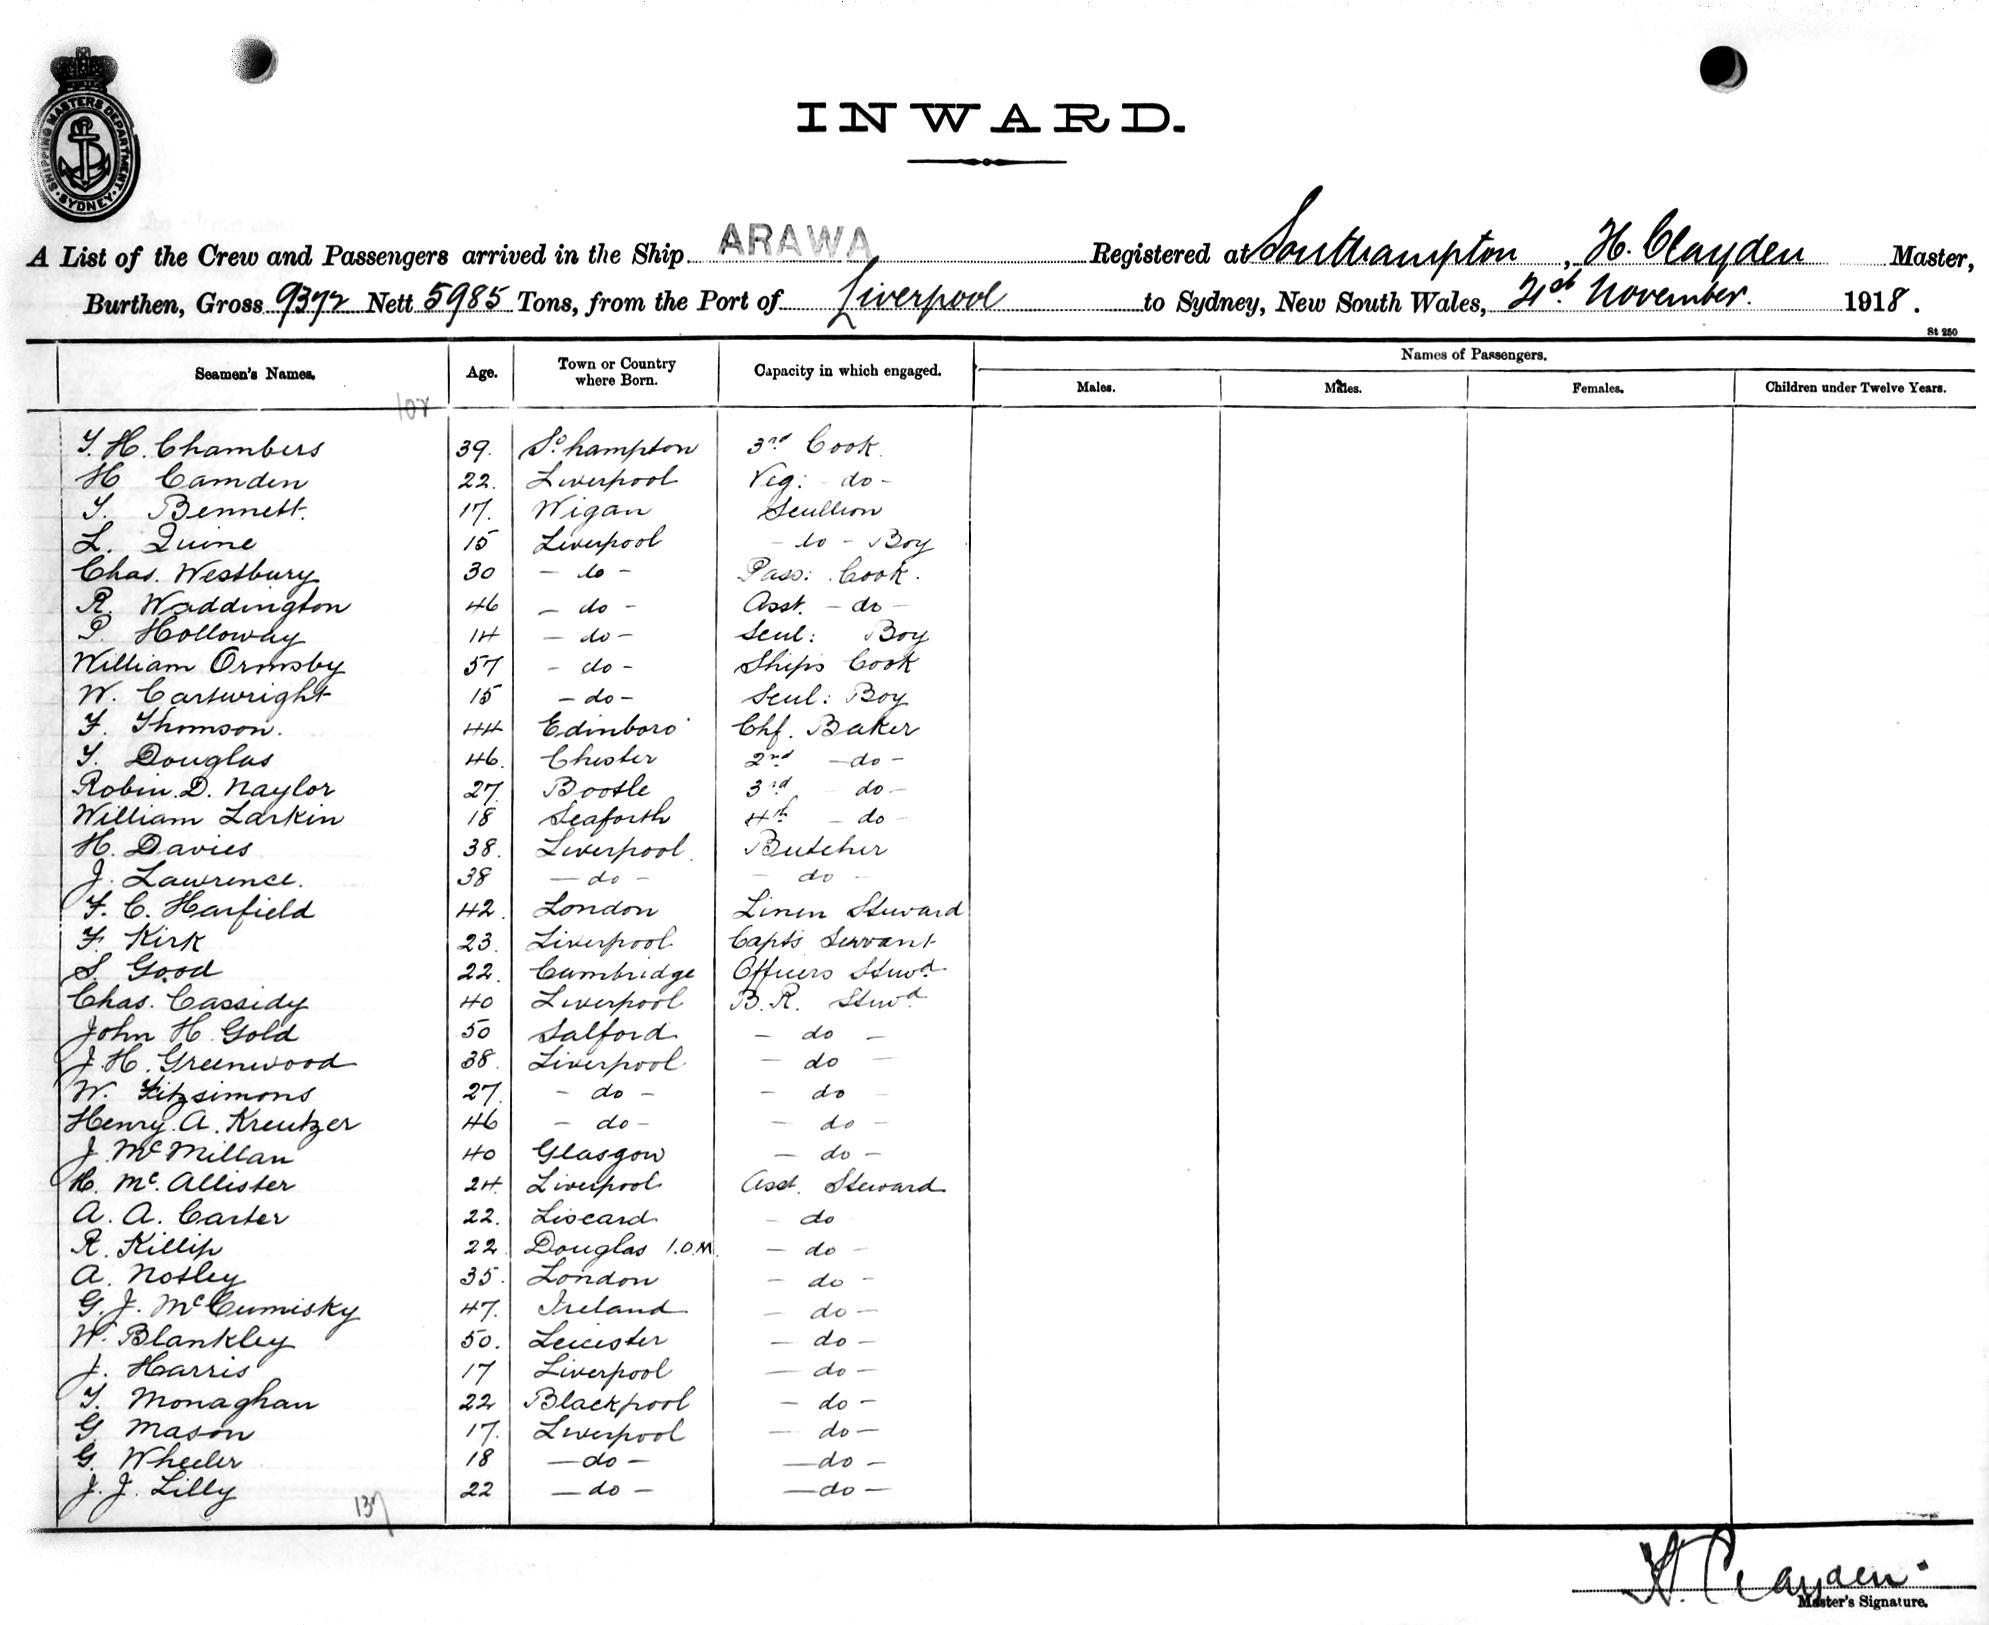 SHIPPING MASTERS DEPARTMENT
SYDNEY
INWARD.
A List of the Crew and Passengers arrived in the Ship ARAWA Registered at Southampton, H. Clayden Master,
Burthen, Gross 9372 Nett 5985 Tons, from the Port of Liverpool to Sydney, New South Wales, 21st November. 1918.
St 250
Seamen's Names. Age. Town or Country where Born. Capacity in which engaged. Names of Passengers.
Males. Males. Females. Children under Twelve Years.
102
T. H. Chambers 39. So hampton 3rd Cook
H Camden 22. Liverpool Veg: - do -
T. Bennett. 17. Wigan Scullion
L. Quine 15 Liverpool - do - Boy
Chas. Westbury 30 - do - Pass: Cook.
R. Waddington 46 - do - Asst. - do -
P. Holloway 14 - do - Scul: Boy
William Ormsby 57 - do - Ships Cook
W. Cartwright 15 - do - Scul: Boy
F. Thomson. 44 Edinboro' Chf. Baker
T. Douglas 46. Chester 2nd - do -
Robin. D. Naylor 27. Bootle 3rd do -
William Larkin 18 Seaforth 4th - do -
H. Davies 38. Liverpool. Butcher
J. Lawrence. 38 - do - - do -
F. C. Harfield 42. London Linen Steward
F. Kirk 23. Liverpool Capts Servant
S. Good 22. Cambridge Officers Stewd
Chas. Cassidy 40 Liverpool B. R. Stewd
John H. Gold 50 Salford - do -
J. H. Greenwood 38. Liverpool - do -
W. Fitzsimons 27. - do - - do -
Henry. A. Kreutzer 46 - do - - do -
J. McMillan 40 Glasgow - do -
H. Mc. Allister 24. Liverpool Asst. Steward
A. A. Carter 22. Liscard - do
R. Killip 22. Douglas I.O.M. - do -
A. Notley 35. London - do -
G. J. McCumisky 47. Ireland - do -
W. Blankley 50. Leicester - do -
J. Harris 17 Liverpool - do -
T. Monaghan 22 Blackpool - do -
G. Mason 17. Liverpool - do -
G. Wheeler 18 - do - - do -
J. J. Lilly 22 - do - - do -
137
H. Clayden
Master's Signature.